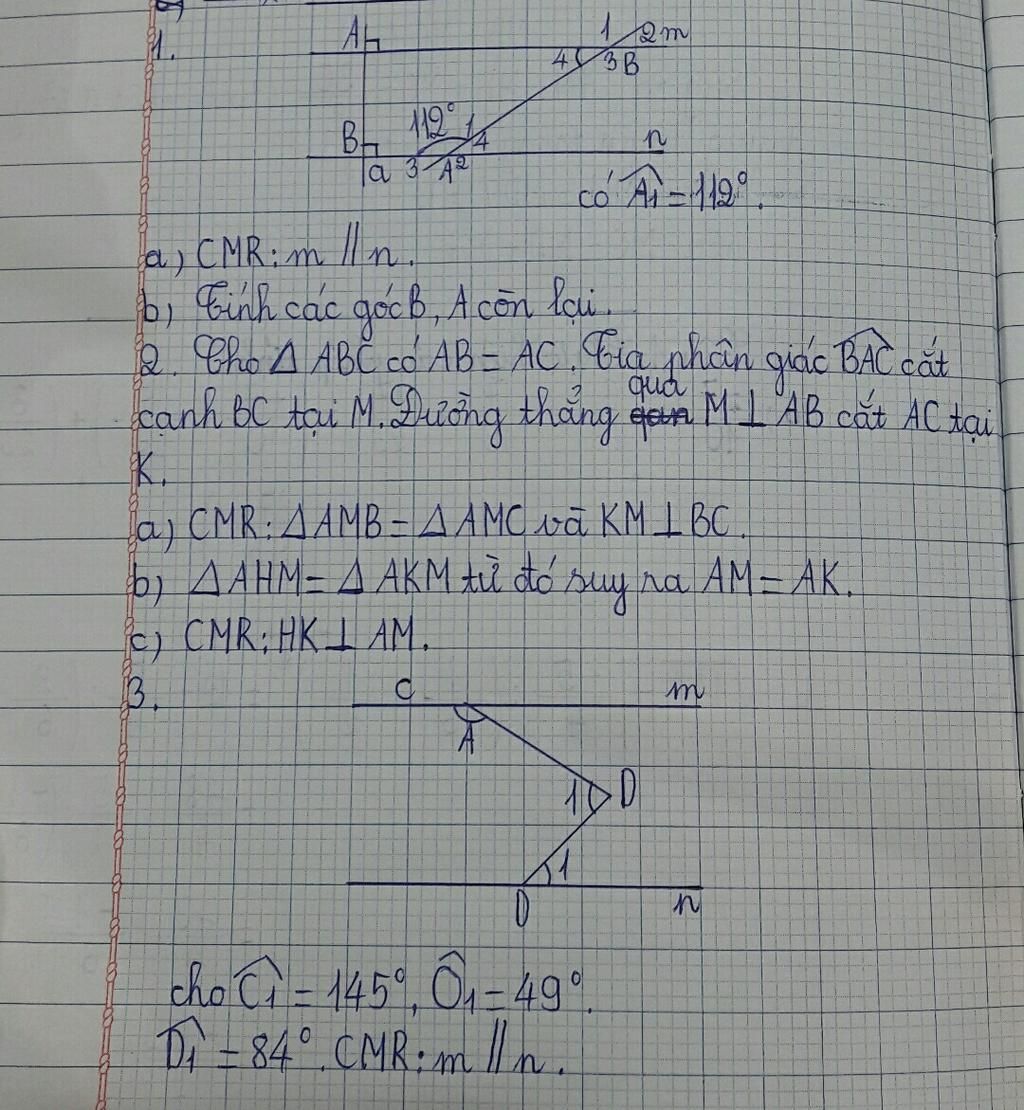 1.
A 1 2 m
4 3 B
112°
B 1 4 n
a 3 A 2
có Â1 = 112°.
a) CMR: m // n.
b) Tính các góc B, A còn lại.
2. Cho Δ ABC có AB = AC. Tia phân giác BAC cắt
cạnh BC tại M. Đường thẳng qua M ⊥ AB cắt AC tại
K.
a) CMR: Δ AMB = Δ AMC và KM ⊥ BC.
b) Δ AHM = Δ AKM từ đó suy ra AM = AK.
c) CMR: HK ⊥ AM.
3. C m
A
1 D
1
D n
cho Ĉ1 = 145°, Ô1 = 49°.
D̂1 = 84°. CMR: m // n.